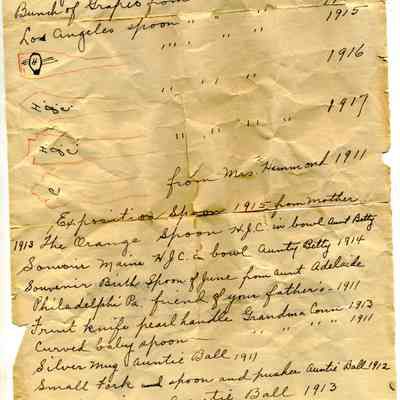 Bunch of Grapes from
Los Angeles spoon " " " 1915
" " " 1916
H
" " " 1917
H & C
" " "
H & C
C
from Mrs. Hammond 1911
Exposition Spoon 1915 from Mother
1913 The Orange Spoon H.J.C. in bowl Aunt Betty
Souvoir Maine H.J.C. in bowl Aunty Betty 1914
Souvenir Birth Spoon of June from aunt Adelaide
Philadelphi Pa. friend of your father's - 1911
Fruit knife pearl handle Grandma Corn 1913
Curved baby spoon — " " " " 1911
Silver Mug Auntie Ball 1911
Small Fork and spoon and pusher Auntie Ball 1912
Auntie Ball 1913